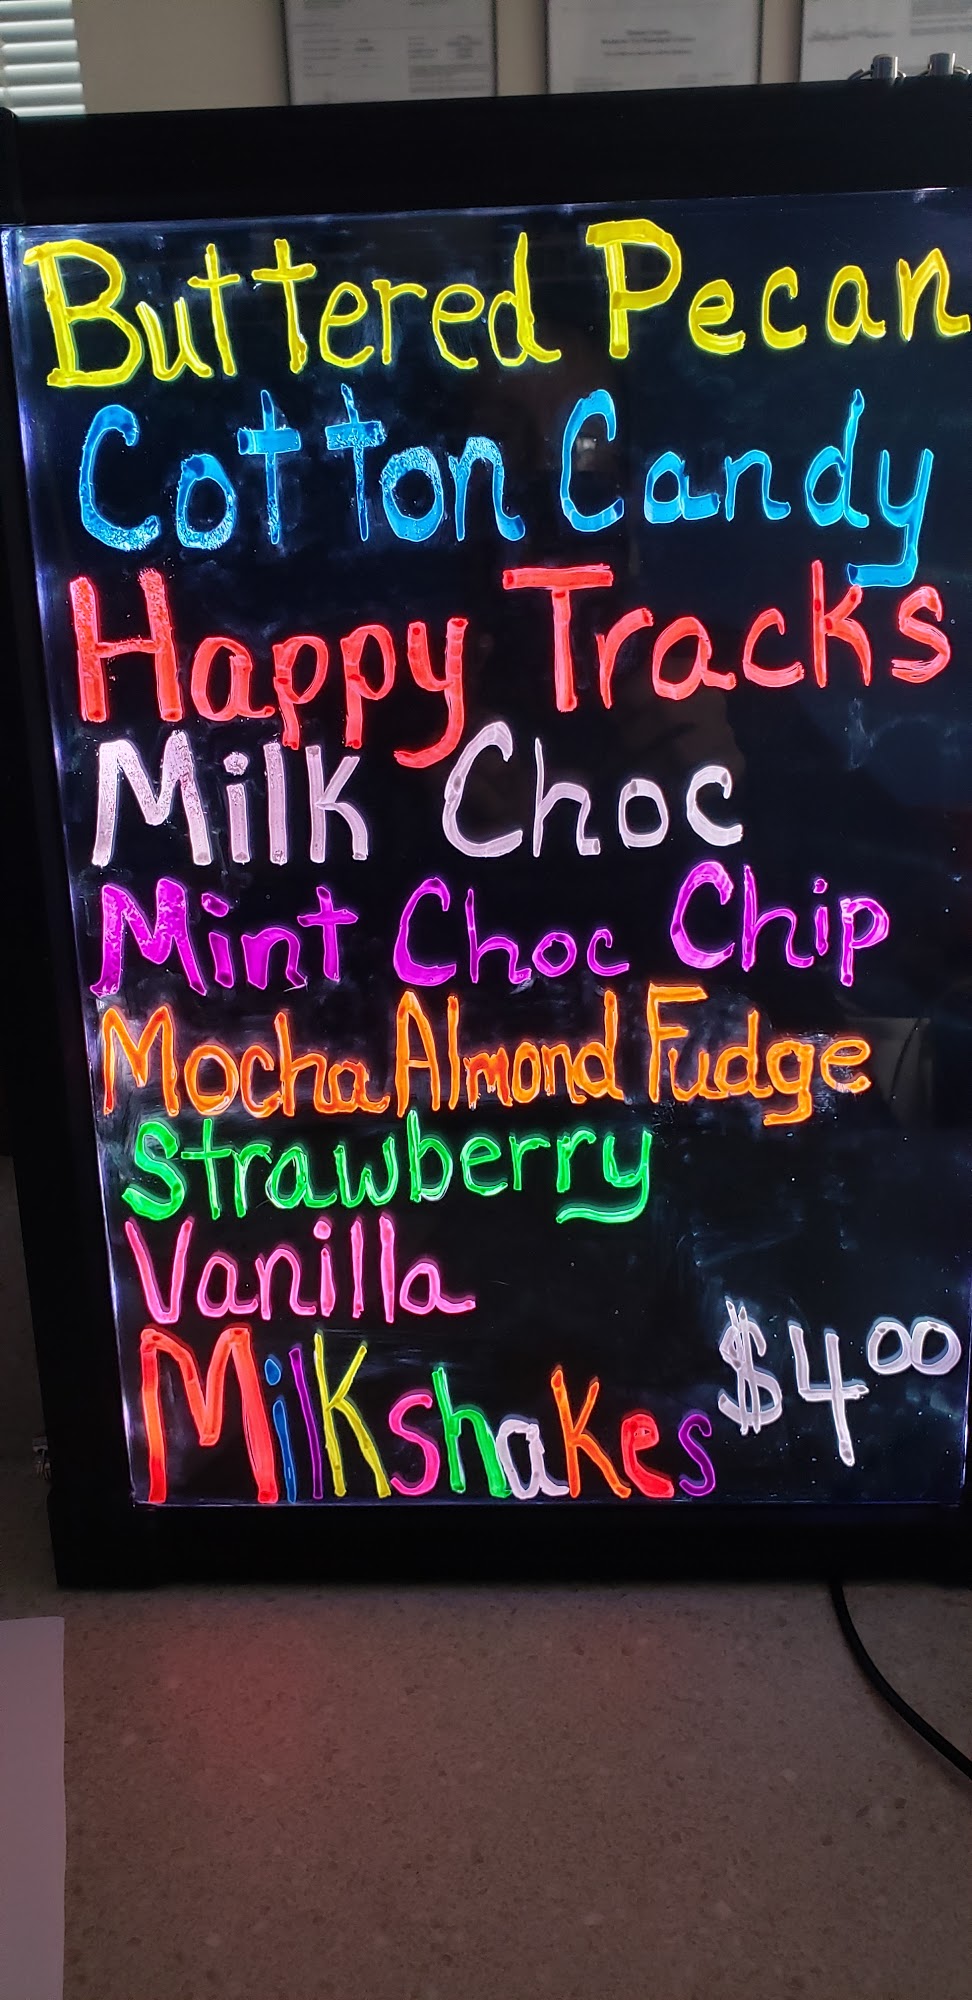 Buttered Pecan
Cotton Candy
Happy Tracks
Milk Choc
Mint Choc Chip
Mocha Almond Fudge
Strawberry
Vanilla
Milkshakes $4.00